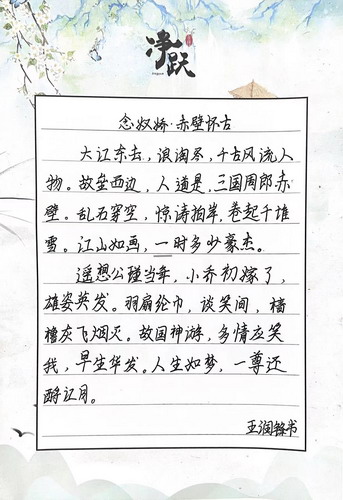 净跃
念奴娇·赤壁怀古
大江东去，浪淘尽，千古风流人
物。故垒西边，人道是，三国周郎赤
壁。乱石穿空，惊涛拍岸，卷起千堆
雪。江山如画，一时多少豪杰。
遥想公瑾当年，小乔初嫁了，
雄姿英发。羽扇纶巾，谈笑间，樯
橹灰飞烟灭。故国神游，多情应笑
我，早生华发。人生如梦，一尊还
酹江月。
王润铭书